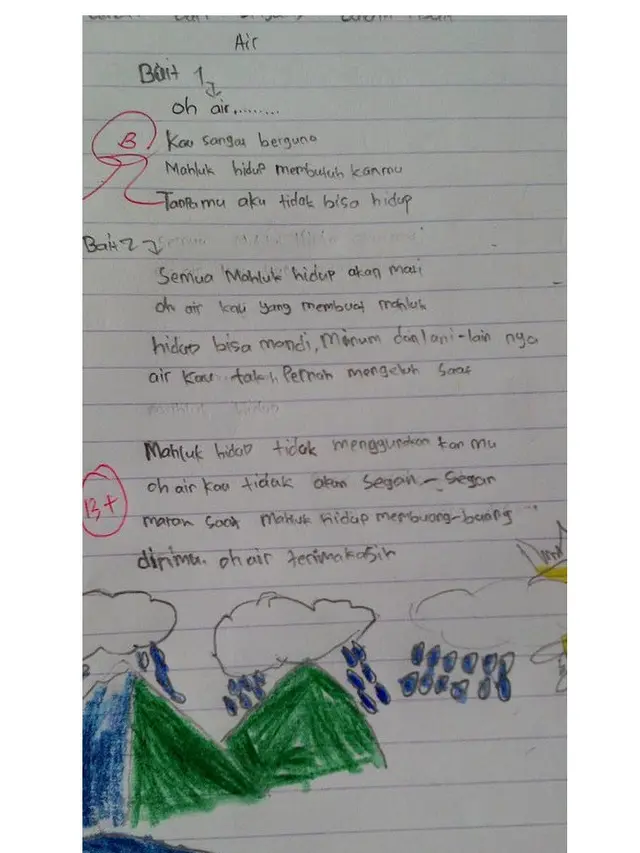 Air
Bait 1
oh air.........
B Kau sangat berguna
Mahluk hidup membutuh kanmu
Tanpamu aku tidak bisa hidup
Bait 2
Semua Mahluk hidup akan mati
oh air kau yang membuat mahluk
hidup bisa mandi, Minum dan lani-lain nya
air kau tak Pernah mengeluh saat
Mahluk hidup tidak menggunakan kan mu
B+ oh air kau tidak akan Segan - Segan
maran saat Mahluk hidup membuang-buang
dirimu. oh air terimakasih